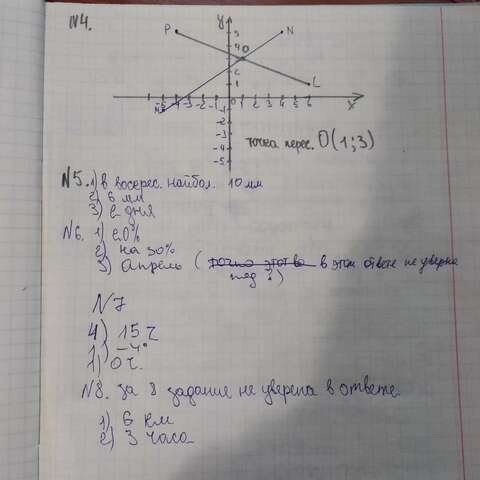 N4.
y
P
5
N
4
O
3
2
1
L
-5 -4 -3 -2 -1 1 2 3 4 5 6 x
-1
-2
-3
-4
-5
точка перес. O(1;3)
N5. 1) в воскрес. найбол. 10 мм
2) 6 мм
3) 2 дня
N6. 1) 20%
2) на 30%
3) Апрель ( в этом ответе не уверена
)
N7
4) 15 г
1) -4°
1) 0 г.
N8. за 8 задание не уверена в ответе.
1) 6 км
2) 3 часа